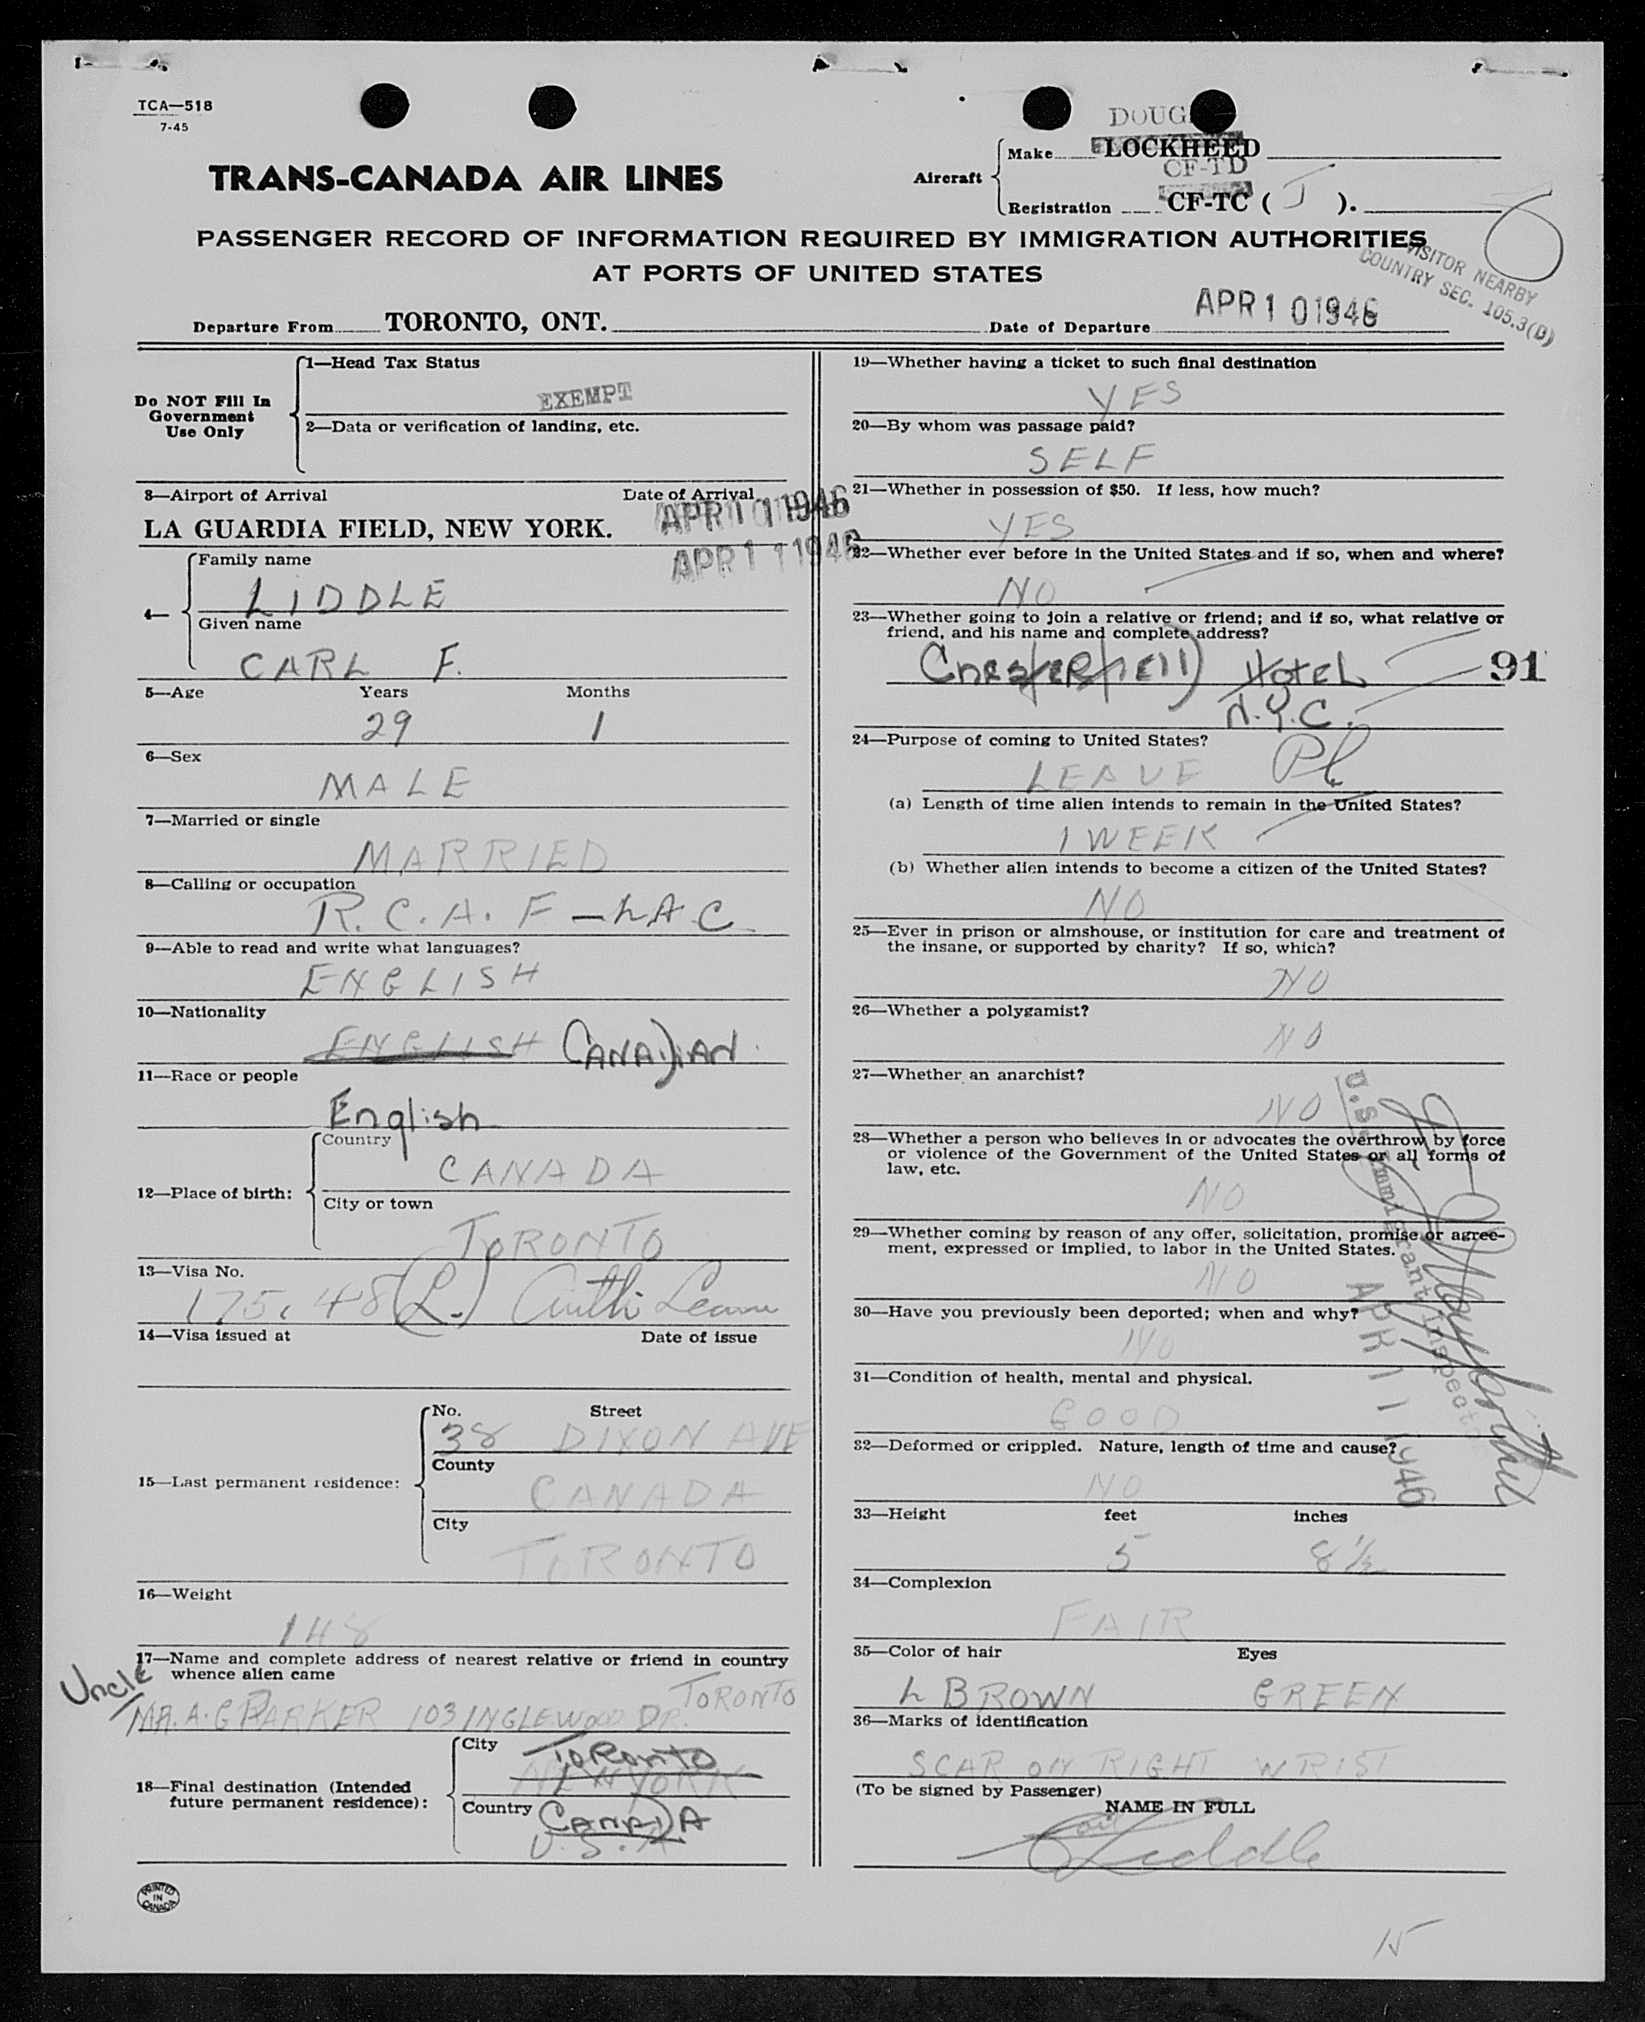 TCA—518
7-45
TRANS-CANADA AIR LINES
Aircraft
DOUG
Make LOCKHEED
CF-TD
Registration CF-TC ( J ).
PASSENGER RECORD OF INFORMATION REQUIRED BY IMMIGRATION AUTHORITIES
AT PORTS OF UNITED STATES
VISITOR NEARBY
COUNTRY SEC. 105.3(B)
Departure From TORONTO, ONT. Date of Departure APR 10 1946
Do NOT Fill In
Government
Use Only
1—Head Tax Status
EXEMPT
2—Data or verification of landing, etc.
3—Airport of Arrival Date of Arrival
LA GUARDIA FIELD, NEW YORK. APR 11 1946
APR 11 1946
4—
Family name
LIDDLE
Given name
CARL F.
5—Age Years Months
29 1
6—Sex
MALE
7—Married or single
MARRIED
8—Calling or occupation
R.C.A.F—LAC
9—Able to read and write what languages?
ENGLISH
10—Nationality
ENGLISH CANADIAN
11—Race or people
English
12—Place of birth:
Country
CANADA
City or town
TORONTO
13—Visa No.
175.48 (L.) Auth Leave
14—Visa issued at Date of issue
15—Last permanent residence:
No. Street
38 DIXON AVE
County
CANADA
City
TORONTO
16—Weight
148
17—Name and complete address of nearest relative or friend in country
whence alien came
Uncle
MR. A. G PARKER 103 INGLEWOOD DR. TORONTO
18—Final destination (Intended
future permanent residence):
City
TORONTO
NEW YORK
Country
CANADA
U.S.A
PRINTED
IN
CANADA
19—Whether having a ticket to such final destination
YES
20—By whom was passage paid?
SELF
21—Whether in possession of $50. If less, how much?
YES
22—Whether ever before in the United States and if so, when and where?
NO
23—Whether going to join a relative or friend; and if so, what relative or
friend, and his name and complete address?
Chesterfield HOTEL
91
N.Y.C.
24—Purpose of coming to United States?
LEAVE Pl
(a) Length of time alien intends to remain in the United States?
1 WEEK
(b) Whether alien intends to become a citizen of the United States?
NO
25—Ever in prison or almshouse, or institution for care and treatment of
the insane, or supported by charity? If so, which?
NO
26—Whether a polygamist?
NO
27—Whether an anarchist?
NO
28—Whether a person who believes in or advocates the overthrow by force
or violence of the Government of the United States or all forms of
law, etc.
NO
29—Whether coming by reason of any offer, solicitation, promise or agree-
ment, expressed or implied, to labor in the United States.
NO
30—Have you previously been deported; when and why?
NO
31—Condition of health, mental and physical.
GOOD
32—Deformed or crippled. Nature, length of time and cause?
NO
U.S. Immigrant Inspector
APR 11 1946
33—Height feet inches
5 8 1/2
34—Complexion
FAIR
35—Color of hair Eyes
L BROWN GREEN
36—Marks of identification
SCAR ON RIGHT WRIST
(To be signed by Passenger)
NAME IN FULL
Carl Liddle
15